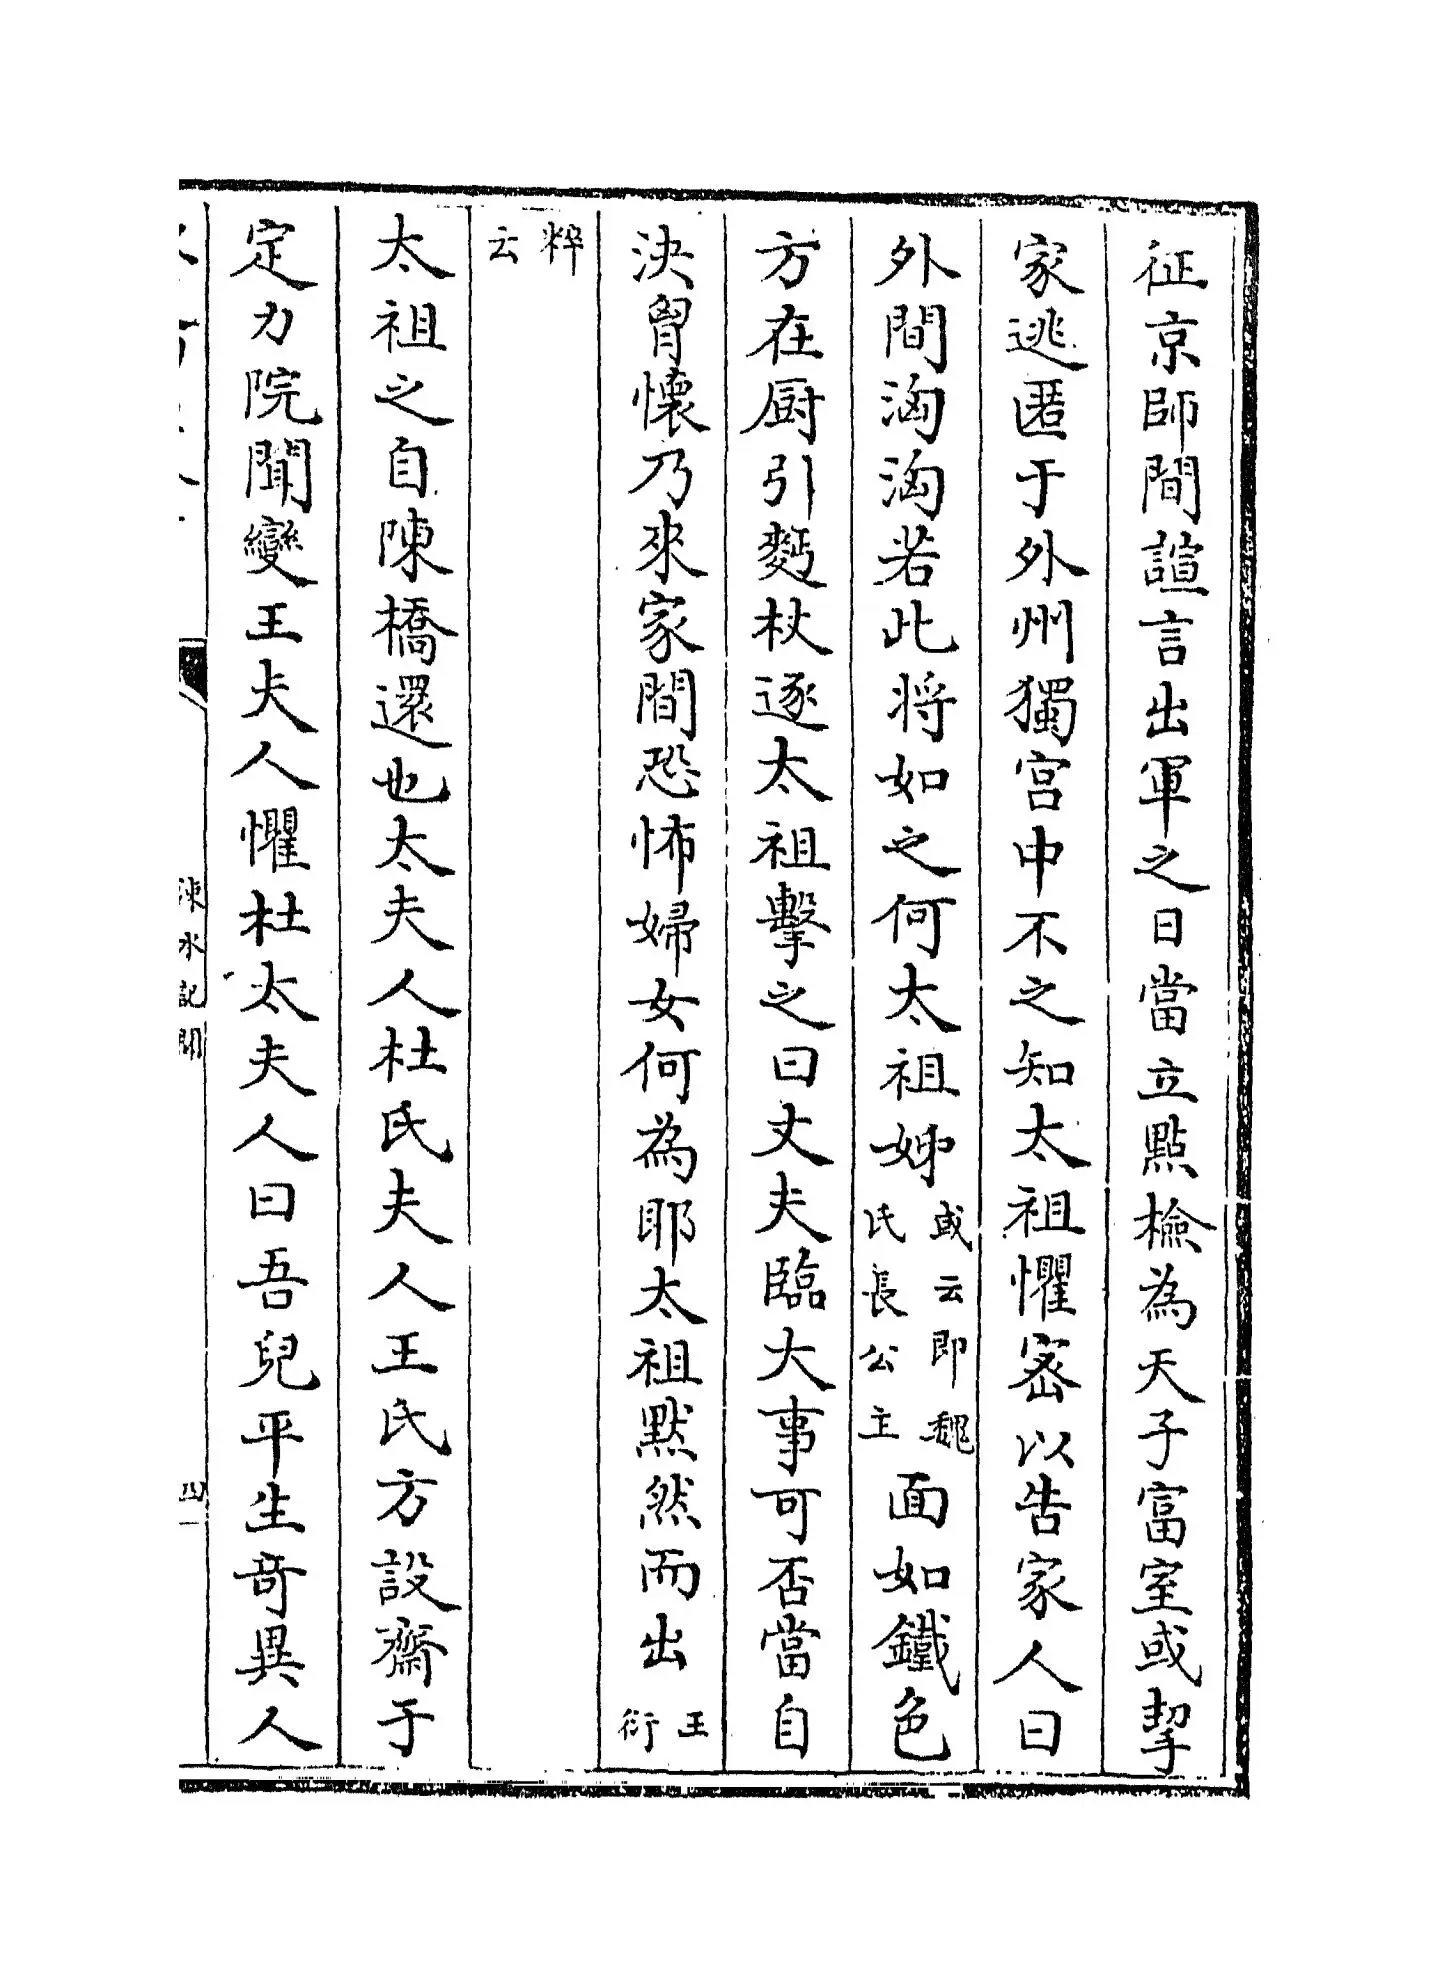 征京師間諠言出軍之日當立點檢為天子富室或挈
家逃匿于外州獨宫中不之知太祖懼密以告家人曰
外間洶洶若此将如之何太祖姊或云即魏氏長公主面如鐵色
方在厨引麪杖逐太祖擊之曰丈夫臨大事可否當自
決胷懷乃來家間恐怖婦女何為耶太祖默然而出王衍
粹云
太祖之自陳橋還也太夫人杜氏夫人王氏方設齋于
定力院聞變王夫人懼杜太夫人曰吾兒平生奇異人
涑水記聞
四